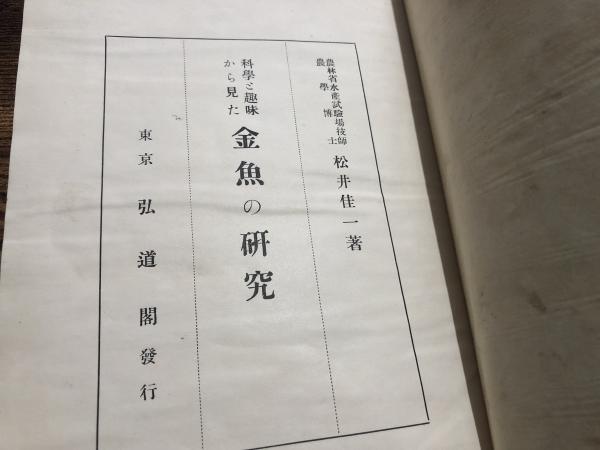 農林省水産試驗場技師
農學博士
松井佳一著
科學と趣味
から見た
金魚の研究
東京 弘道閣發行